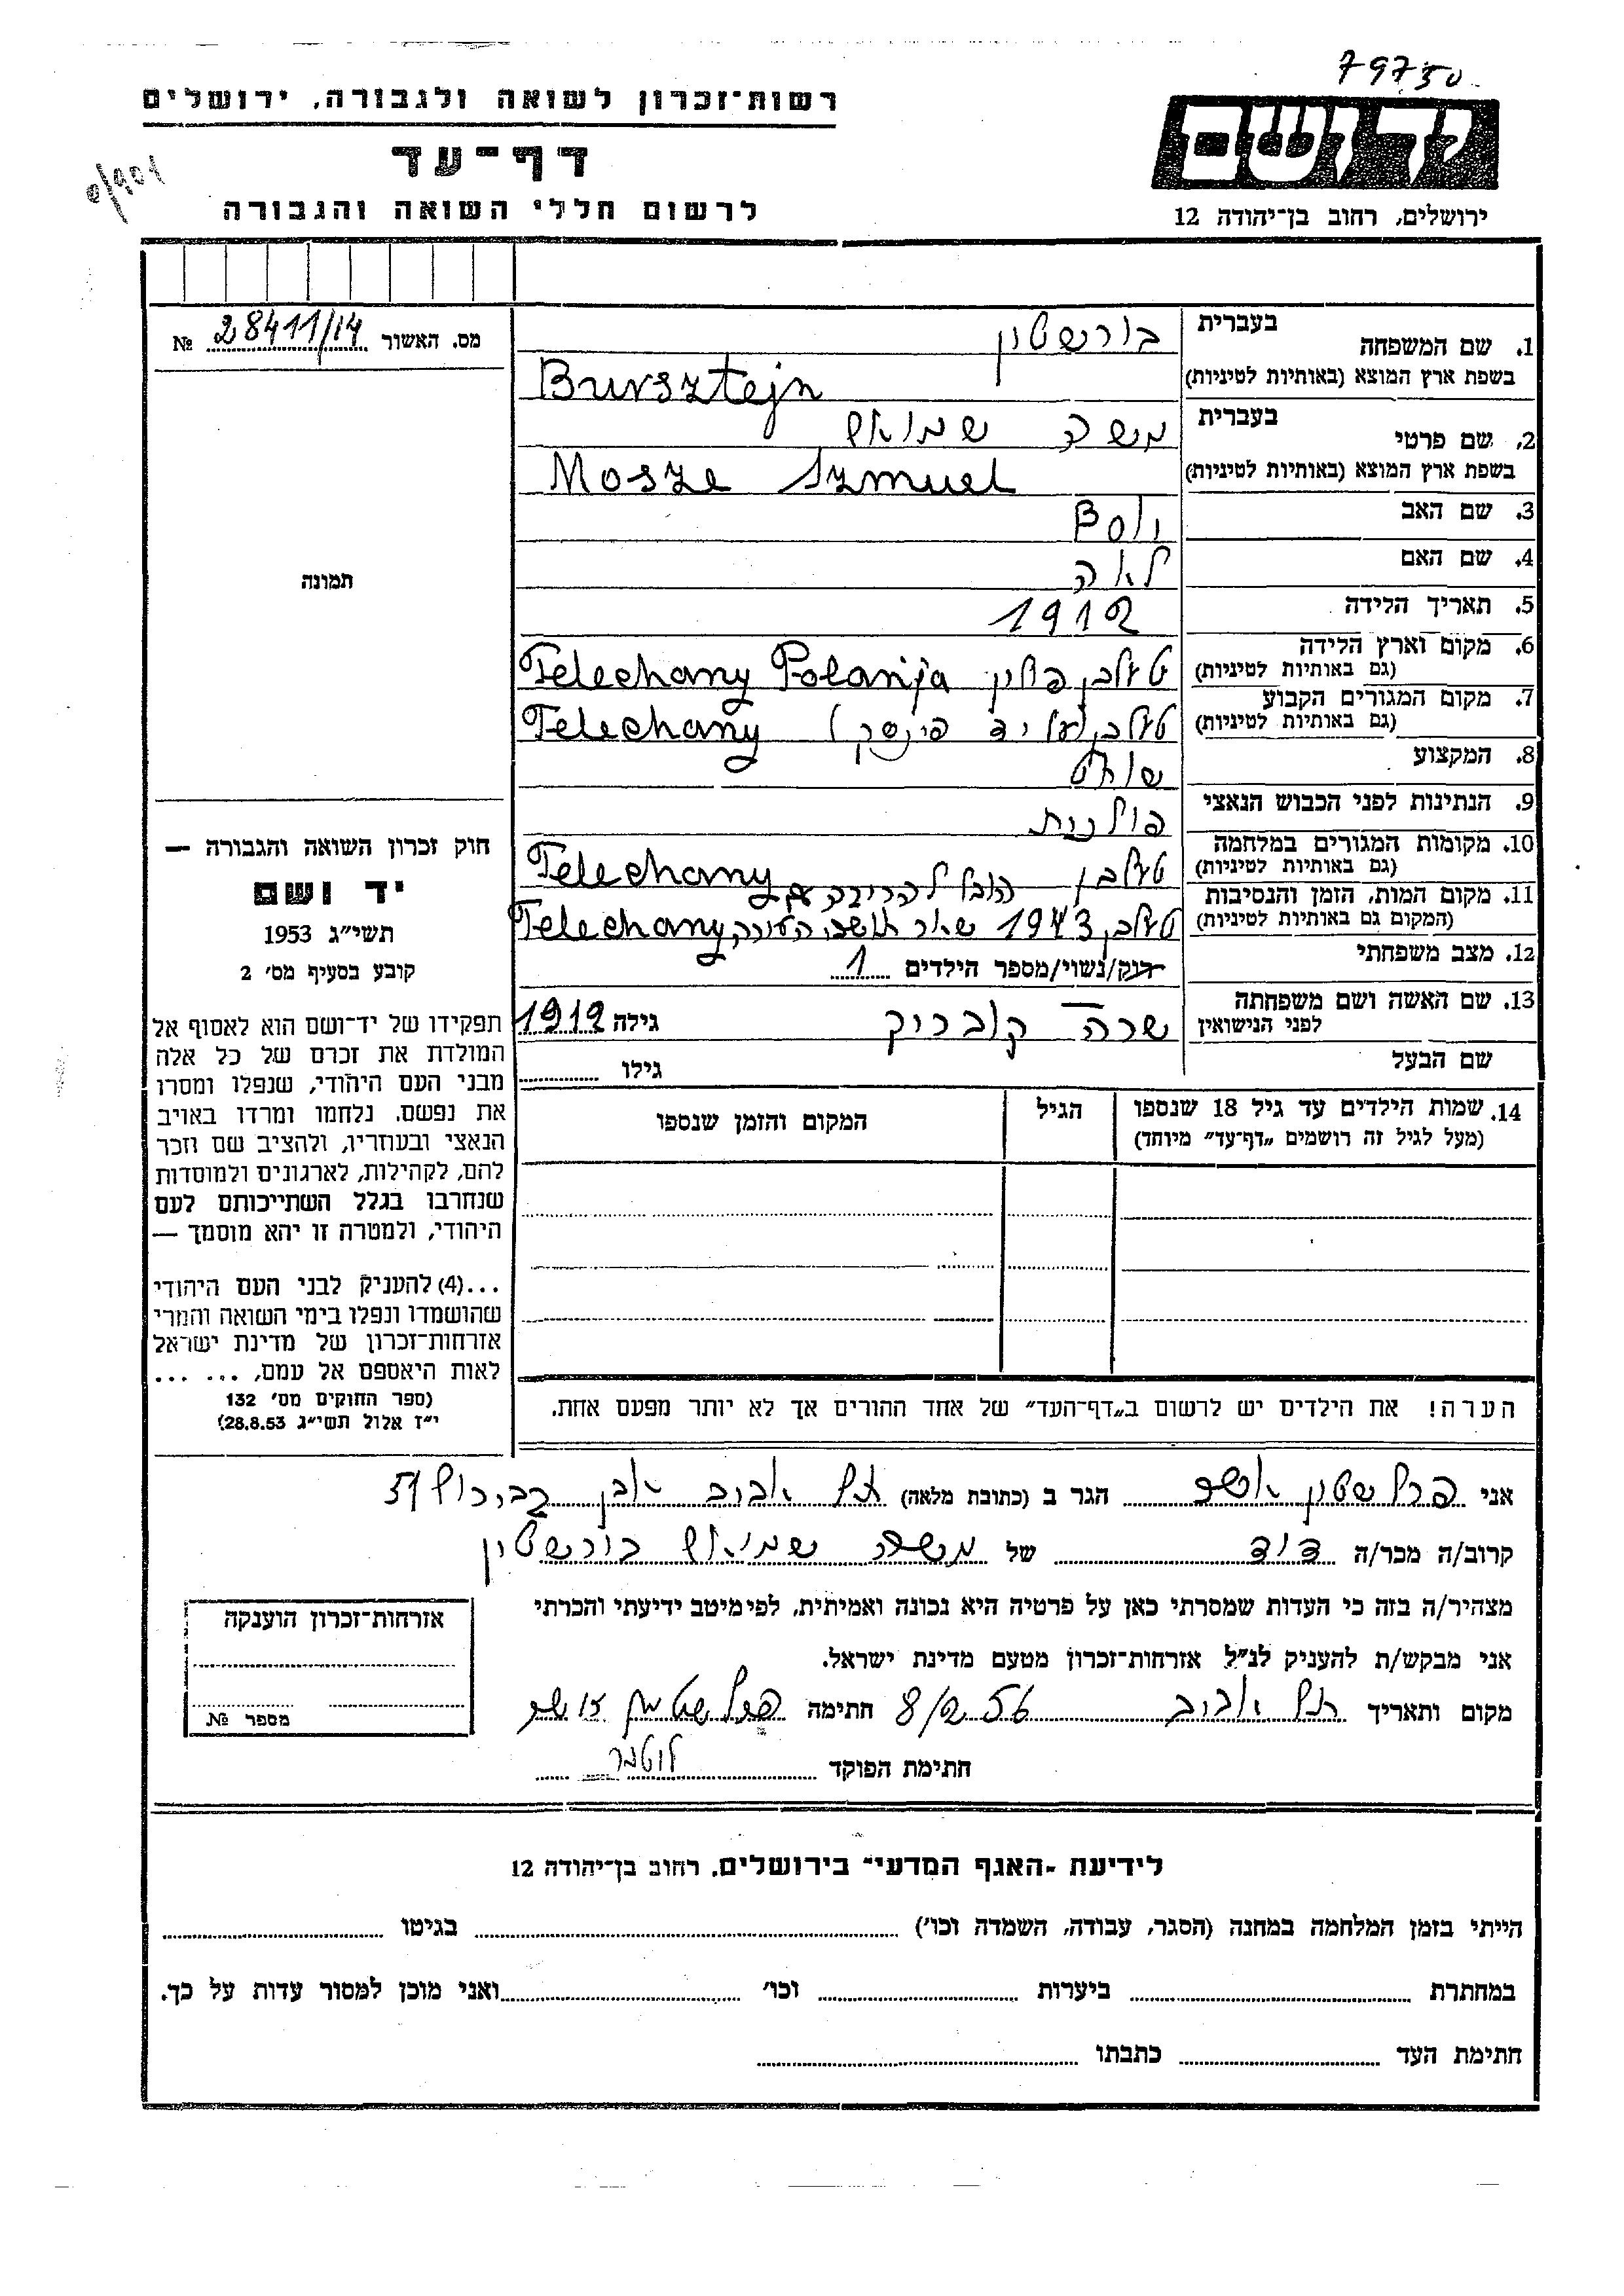 79750
רשות-זכרון לשואה ולגבורה, ירושלים
דף-עד
לרשום חללי השואה והגבורה
יד ושם
ירושלים, רחוב בן-יהודה 12
מס. האשור 28411/14 №
תמונה
1. שם המשפחה בעברית בורשטין
בשפת ארץ המוצא (באותיות לטיניות) Bursztejn
2. שם פרטי בעברית משה שמואל
בשפת ארץ המוצא (באותיות לטיניות) Mosze Szmuel
3. שם האב
4. שם האם לאה
5. תאריך הלידה 1912
6. מקום וארץ הלידה (גם באותיות לטיניות) טלכן פולין Telechany Polanija
7. מקום המגורים הקבוע (גם באותיות לטיניות) טלכן (על יד פינסק) Telechany
8. המקצוע שוחט
9. הנתינות לפני הכבוש הנאצי פולנית
10. מקומות המגורים במלחמה (גם באותיות לטיניות) טלכן Telechany
11. מקום המות, הזמן והנסיבות (המקום גם באותיות לטיניות) הובל להריגה עם
טלכן 1943 שאר תושבי העירה Telechany
12. מצב משפחתי רוק/נשוי/מספר הילדים 1
13. שם האשה ושם משפחתה לפני הנישואין שרה קוברוק גילה 1912
שם הבעל גילו
14. שמות הילדים עד גיל 18 שנספו הגיל המקום והזמן שנספו
(מעל לגיל זה רושמים „דף-עד” מיוחד)
הערה! את הילדים יש לרשום ב„דף-העד” של אחד ההורים אך לא יותר מפעם אחת.
חוק זכרון השואה והגבורה —
יד ושם
תשי״ג 1953
קובע בסעיף מס׳ 2
תפקידו של יד-ושם הוא לאסוף אל
המולדת את זכרם של כל אלה
מבני העם היהודי, שנפלו ומסרו
את נפשם, נלחמו ומרדו באויב
הנאצי ובעוזריו, ולהציב שם וזכר
להם, לקהילות, לארגונים ולמוסדות
שנחרבו בגלל השתייכותם לעם
היהודי, ולמטרה זו יהא מוסמך —
...(4) להעניק לבני העם היהודי
שהושמדו ונפלו בימי השואה והמרי
אזרחות-זכרון של מדינת ישראל
לאות היאספם אל עמם, ... ...
(ספר החוקים מס׳ 132
י״ז אלול תשי״ג 28.8.53)
אני פרלשטין אשר הגר ב (כתובת מלאה) תל אביב אבן גבירול 51
קרוב/ה מכר/ה דוד של משה שמואל בורשטין
מצהיר/ה בזה כי העדות שמסרתי כאן על פרטיה היא נכונה ואמיתית, לפי מיטב ידיעתי והכרתי
אני מבקש/ת להעניק לנ״ל אזרחות-זכרון מטעם מדינת ישראל.
מקום ותאריך תל אביב 8/2 56 חתימה
חתימת הפוקד
אזרחות-זכרון הוענקה
מספר №
לידיעת „האגף המדעי” בירושלים, רחוב בן-יהודה 12
הייתי בזמן המלחמה במחנה (הסגר, עבודה, השמדה וכו׳) בגיטו
במחתרת ביערות וכו׳ ואני מוכן למסור עדות על כך.
חתימת העד כתבתו